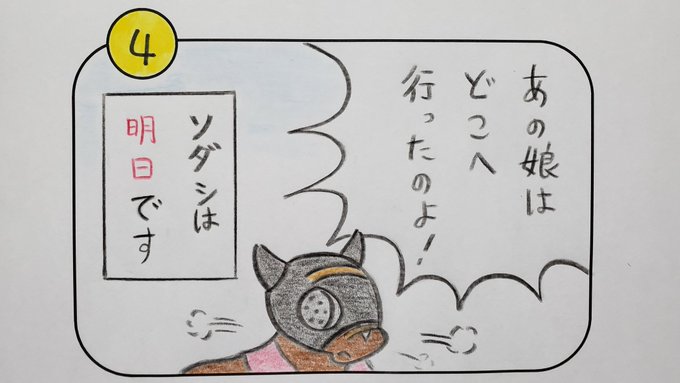 4
あの娘は
どこへ
行ったのよ!
ソダシは
明日です